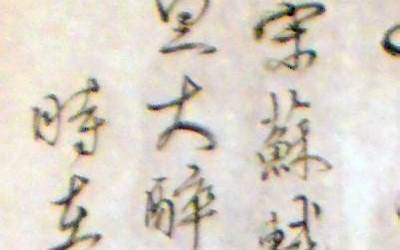 宋蘇軾
旦大醉
時在